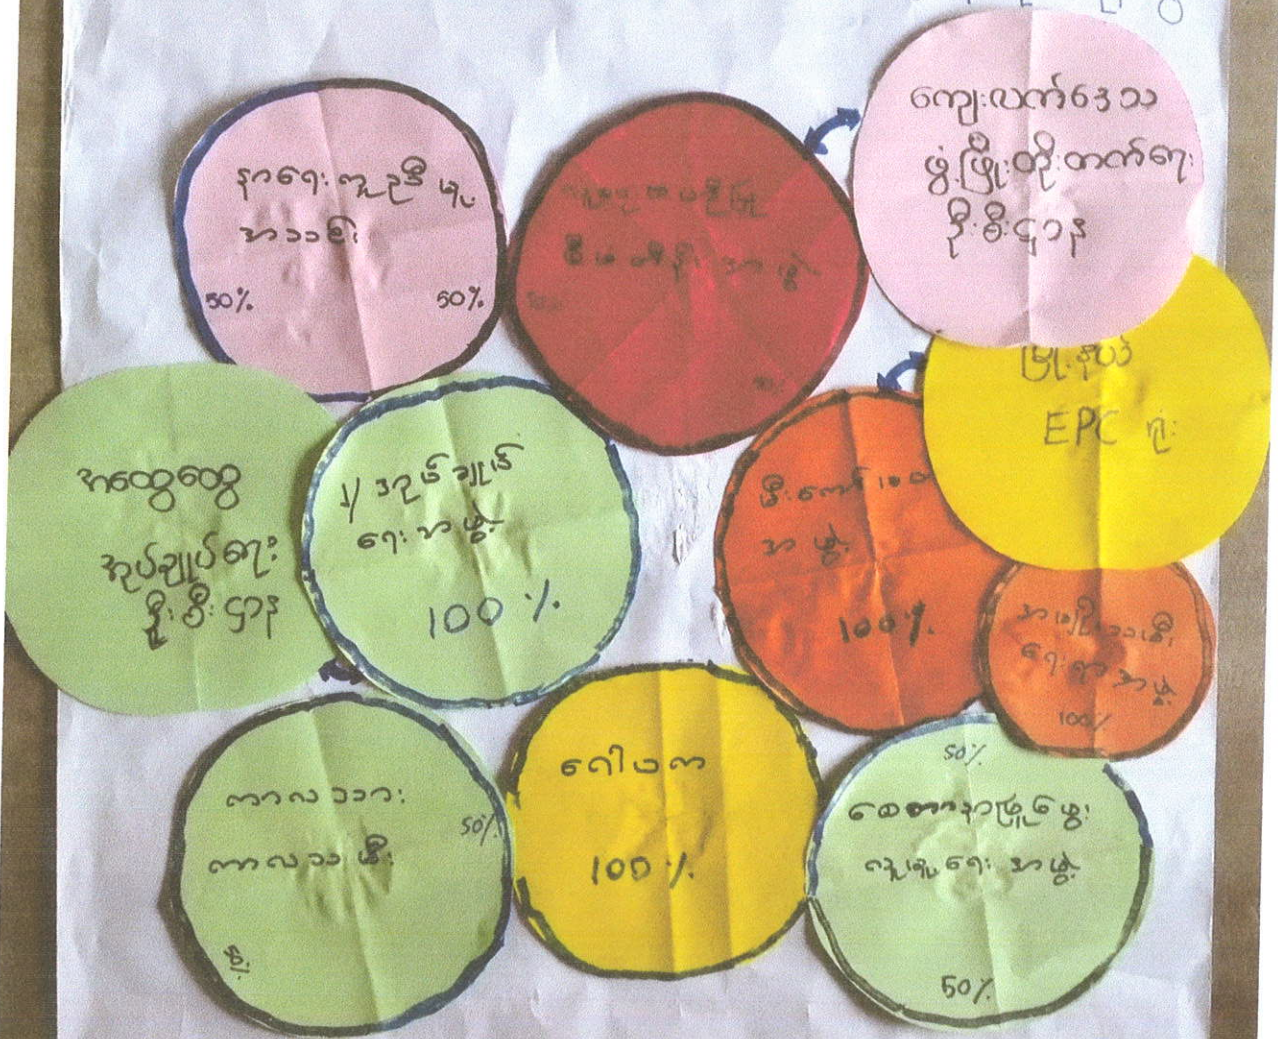 နာရေးကူညီမှု
အသင်း
50%
50%
ကျေးလက်ဒေသ
ဖွံ့ဖြိုးတိုးတက်ရေး
ဦးစီးဌာန
စီမံခန့် အဖွဲ့
မြို့နယ်
EPC ရုံး
အထွေထွေ
အုပ်ချုပ်ရေး
ဦးစီးဌာန
အုပ်ချုပ်
ရေးအဖွဲ့
100%
မီးကော်မတ
အဖွဲ့
100%
အမျိုးသမီး
ရေးရာအဖွဲ့
100%
ကာလသား
50%
ကာလသမီး
ဂေါပက
100%
50%
စေတနာ့ဖြူဖွေး
လူမှုရေးအဖွဲ့
50%